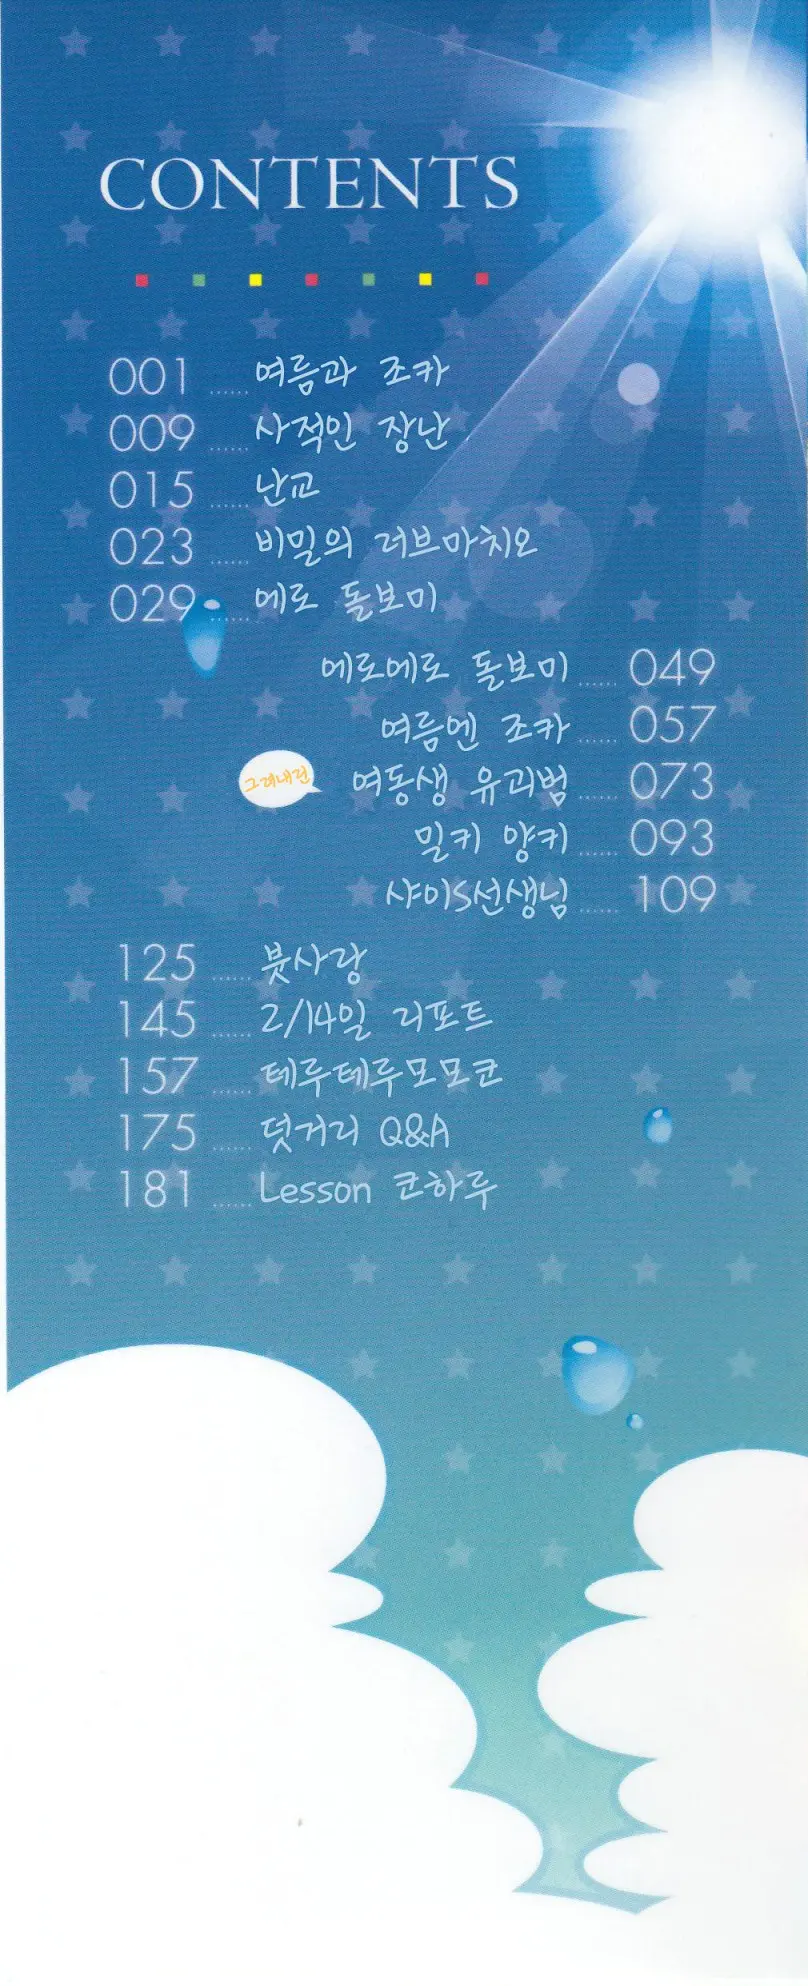 CONTENTS
001 ...... 여름과 조카
009 ...... 사적인 장난
015 ...... 난교
023 ...... 비밀의 러브마치오
029 ...... 에로 돌보미
에로에로 돌보미 ...... 049
여름엔 조카 ...... 057
그려내린 여동생 유괴범 ...... 073
밀키 양키 ...... 093
샤이S선생님 ...... 109
125 ...... 붓사랑
145 ...... 2/14일 리포트
157 ...... 테루테루모모코
175 ...... 덧거리 Q&A
181 ...... Lesson 코하루